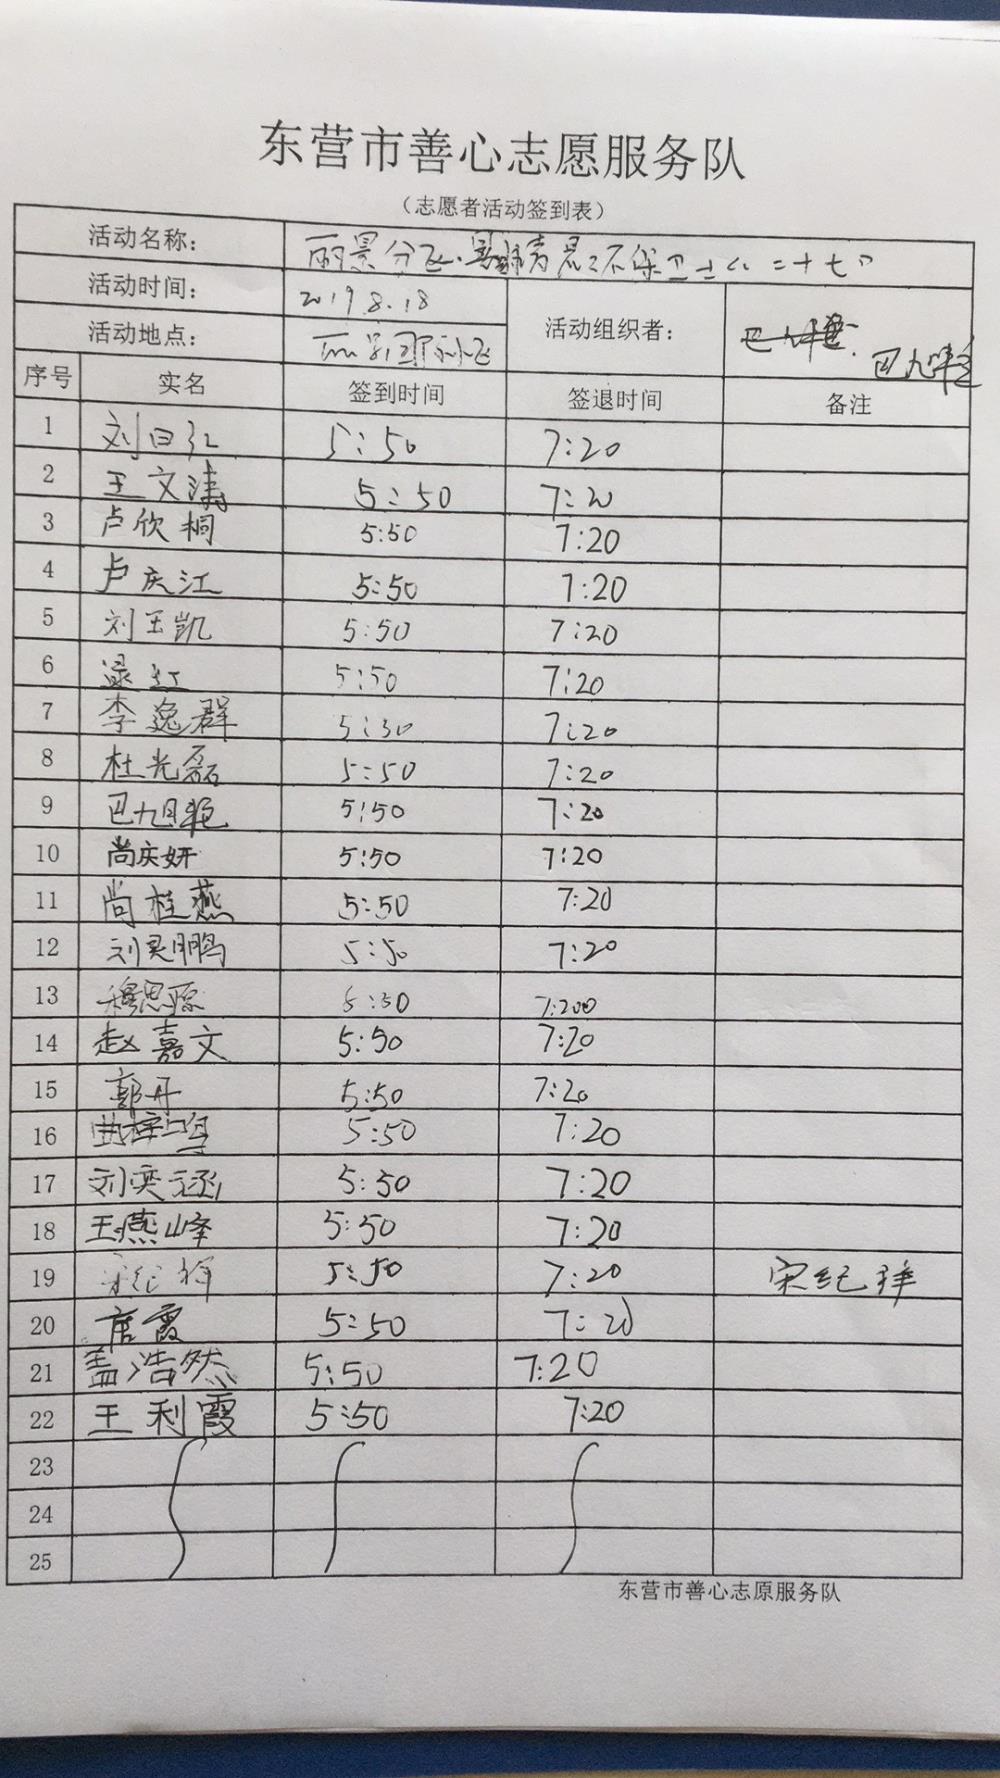 东营市善心志愿服务队
（志愿者活动签到表）
活动名称： 丽景分
活动时间： 2019.8.18
活动组织者： 巴九
活动地点： 丽景
序号 实名 签到时间 签退时间 备注
1 刘日红 5:50 7:20
2 王文涛 5:50 7:20
3 卢欣桐 5:50 7:20
4 卢庆江 5:50 7:20
5 刘玉凯 5:50 7:20
6 红 5:50 7:20
7 李逸群 5:30 7:20
8 杜光磊 5:50 7:20
9 巴九月艳 5:50 7:20
10 尚庆妍 5:50 7:20
11 尚桂燕 5:50 7:20
12 刘昊鹏 5:50 7:20
13 穆思源 5:50 7:200
14 赵嘉文 5:50 7:20
15 郭丹 5:50 7:20
16 曲梓鸣 5:50 7:20
17 刘奕涵 5:50 7:20
18 王燕峰 5:50 7:20
19 宋纪祥 5:50 7:20 宋纪祥
20 唐霞 5:50 7:20
21 盖浩然 5:50 7:20
22 王利霞 5:50 7:20
23
24
25
东营市善心志原服务队